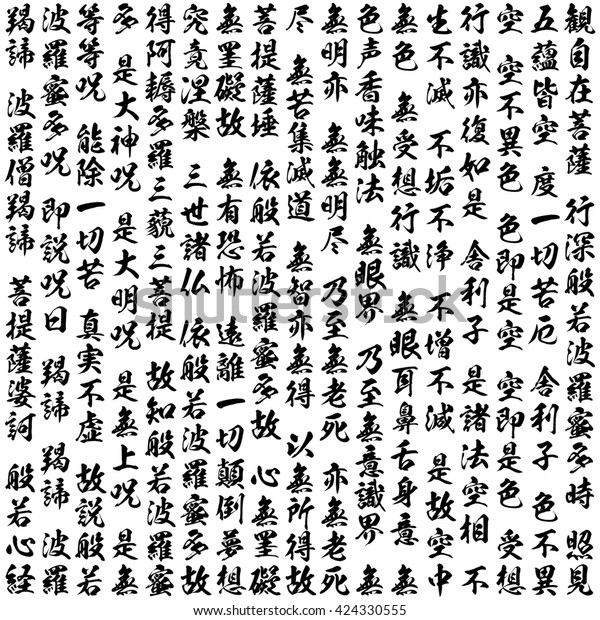 観自在菩薩 行深般若波羅蜜多時 照見
五蘊皆空 度一切苦厄 舎利子 色不異
空 空不異色 色即是空 空即是色 受想
行識亦復如是 舎利子 是諸法空相 不
生不滅 不垢不浄 不増不減 是故空中
無色 無受想行識 無眼耳鼻舌身意 無
色声香味触法 無眼界 乃至無意識界 無
無明亦 無無明尽 乃至無老死 亦無老死
尽 無苦集滅道 無智亦無得 以無所得故
菩提薩埵 依般若波羅蜜多故 心無罣礙
無罣礙故 無有恐怖 遠離一切顛倒夢想
究竟涅槃 三世諸仏 依般若波羅蜜多故
得阿耨多羅三藐三菩提 故知般若波羅蜜
多 是大神呪 是大明呪 是無上呪 是無
等等呪 能除一切苦 真実不虚 故説般若
波羅蜜多呪 即説呪曰 羯諦 羯諦 波羅
羯諦 波羅僧羯諦 菩提薩婆訶 般若心経
shutterstock · 424330555